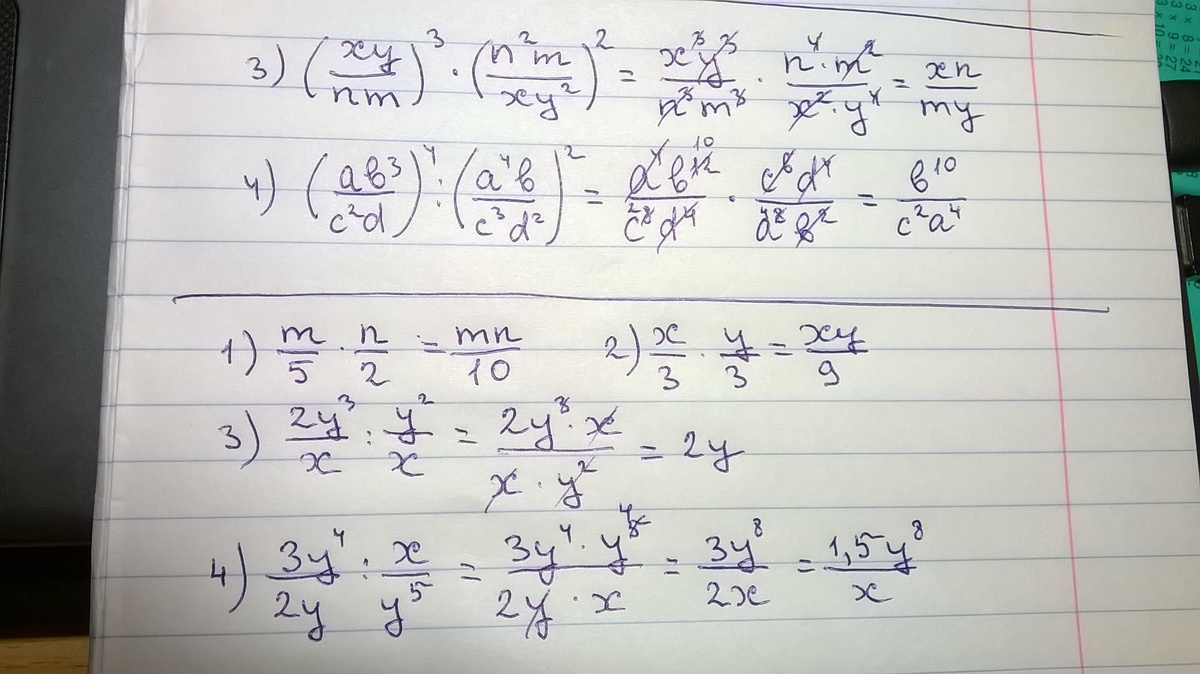 3) (xy/nm)³ · (n²m/xy²)² = x³y³/n³m³ · n⁴·m²/x²·y⁴ = xn/my
4) (aв³/c²d)⁴ : (a⁴в/c³d²)² = a⁴в¹²/c⁸d⁴ · c⁶d⁴/a⁸в² = в¹⁰/c²a⁴
1) m/5 · n/2 = mn/10 2) x/3 · y/3 = xy/9
3) 2y³/x : y²/x = 2y³·x/x·y² = 2y
4) 3y⁴/2y : x/y⁵ = 3y⁴·y⁵/2y·x = 3y⁸/2x = 1,5y⁸/x